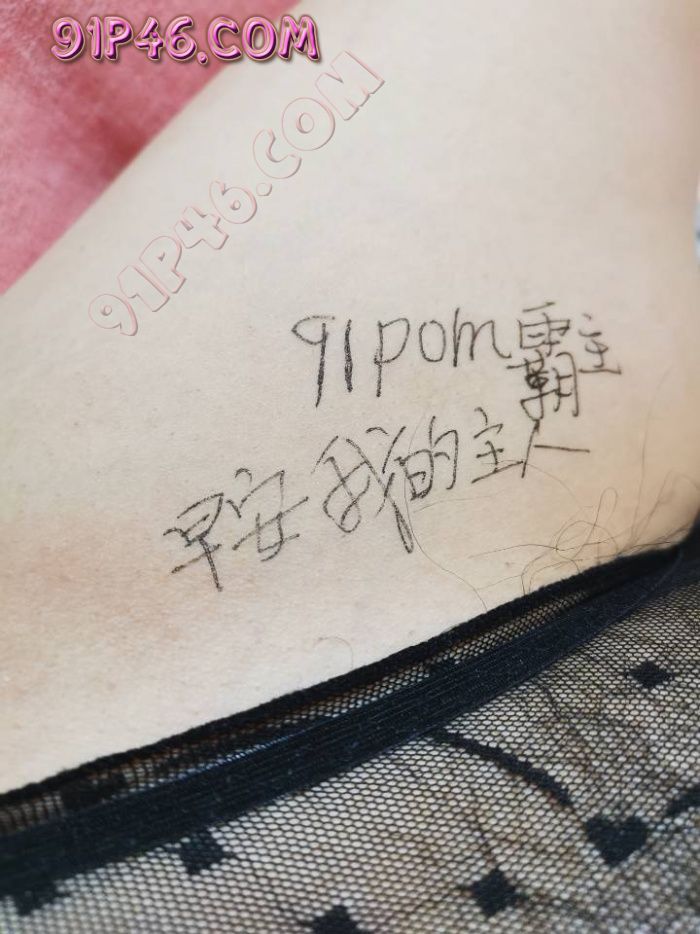 91P46.COM
91P46.COM
91pom霸主
早安我的主人